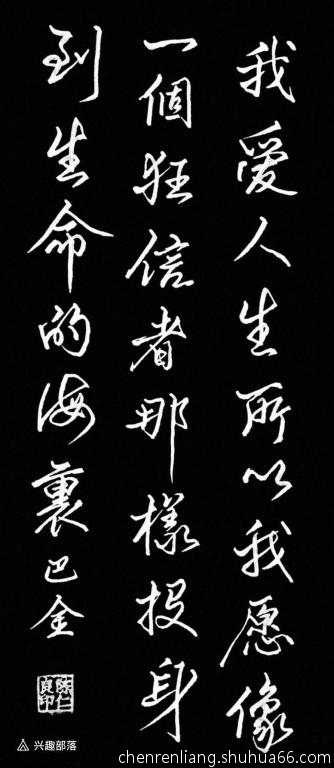 我愛人生所以我愿像
一個狂信者那樣投身
到生命的海裏巴金
陳仁良印
兴趣部落
chenrenliang.shuhua66.com